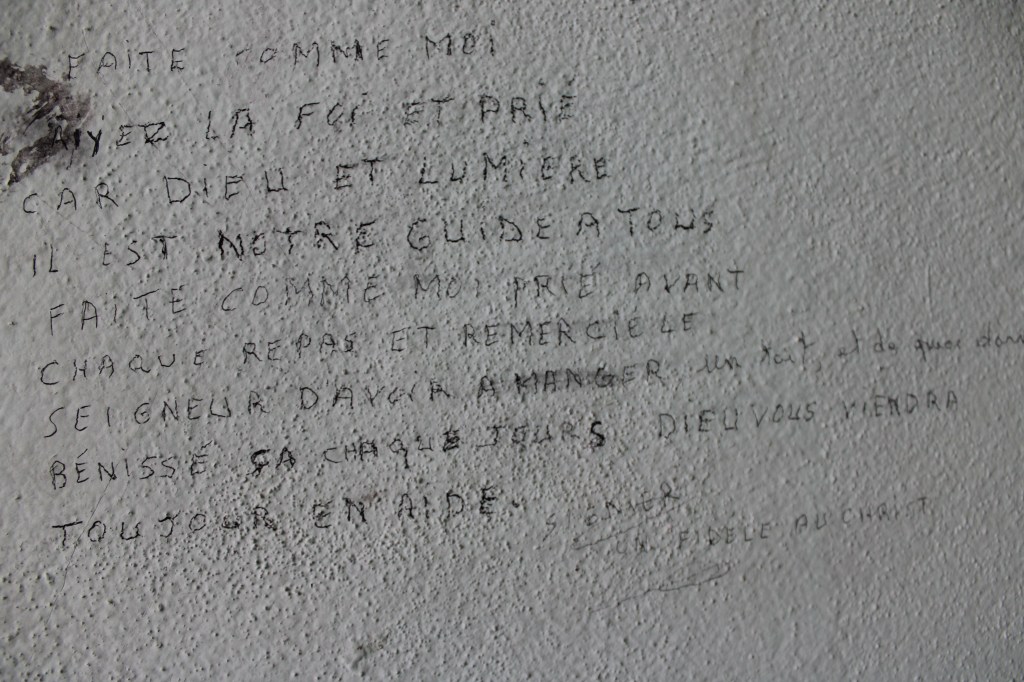 FAITE COMME MOI
AIYEZ LA FOI ET PRIÉ
CAR DIEU ET LUMIERE
IL EST NOTRE GUIDE A TOUS
FAITE COMME MOI PRIÉ AVANT
CHAQUE REPAS ET REMERCIE LE
SEIGNEUR D'AVOIR A MANGER un toit, et de quoi
BÉNISSÉ ÇA CHAQUE JOURS DIEU VOUS VIENDRA
TOUJOUR EN AIDE.
SIGNIER
UN FIDELE AU CHRIST